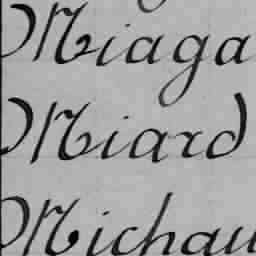 Miaga
Miard
Michau